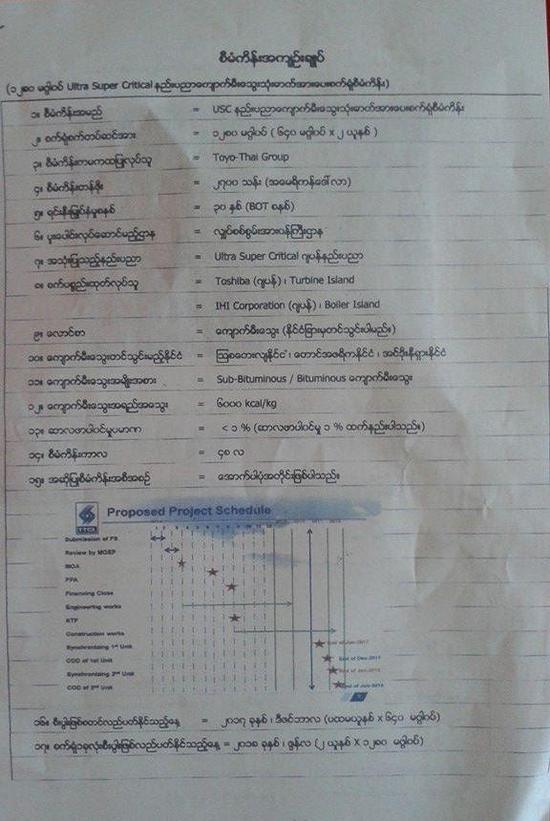 စီမံကိန်းအကျဉ်းချုပ်
(၁၂၈၀ မဂ္ဂါဝပ် Ultra Super Critical နည်းပညာကျောက်မီးသွေးသုံးဓာတ်အားပေးစက်ရုံစီမံကိန်း)
၁။ စီမံကိန်းအမည် = USC နည်းပညာကျောက်မီးသွေးသုံးဓာတ်အားပေးစက်ရုံစီမံကိန်း
၂။ စက်ရုံစက်တပ်ဆင်အား = ၁၂၈၀ မဂ္ဂါဝပ် ( ၆၄၀ မဂ္ဂါဝပ် x ၂ ယူနစ် )
၃။ စီမံကိန်းကမကထပြုလုပ်သူ = Toyo-Thai Group
၄။ စီမံကိန်းတန်ဖိုး = ၂၇၀၀ သန်း (အမေရိကန်ဒေါ်လာ)
၅။ ရင်းနှီးမြှုပ်နှံမှုစနစ် = ၃၀ နှစ် (BOT စနစ်)
၆။ ပူးပေါင်းလုပ်ဆောင်မည့်ဌာန = လျှပ်စစ်စွမ်းအားဝန်ကြီးဌာန
၇။ အသုံးပြုသည့်နည်းပညာ = Ultra Super Critical ဂျပန်နည်းပညာ
၈။ စက်ပစ္စည်းထုတ်လုပ်သူ = Toshiba (ဂျပန်) ၊ Turbine Island
= IHI Corporation (ဂျပန်) ၊ Boiler Island
၉။ လောင်စာ = ကျောက်မီးသွေး (နိုင်ငံခြားမှတင်သွင်းပါမည်။)
၁၀။ ကျောက်မီးသွေးတင်သွင်းမည့်နိုင်ငံ = ဩစတေးလျနိုင်ငံ ၊ တောင်အာဖရိကနိုင်ငံ ၊ အင်ဒိုနီးရှားနိုင်ငံ
၁၁။ ကျောက်မီးသွေးအမျိုးအစား = Sub-Bituminous / Bituminous ကျောက်မီးသွေး
၁၂။ ကျောက်မီးသွေးအရည်အသွေး = ၆၀၀၀ kcal/kg
၁၃။ ဆာလဖာပါဝင်မှုပမာဏ = < ၁ % (ဆာလဖာပါဝင်မှု ၁ % ထက်နည်းပါသည်။)
၁၄။ စီမံကိန်းကာလ = ၄၈ လ
၁၅။ အဆိုပြုစီမံကိန်းအစီအစဉ် = အောက်ပါပုံအတိုင်းဖြစ်ပါသည်။
TTCL
Proposed Project Schedule
Submission of FS
Review by MOEP
MOA
PPA
Financing Close
Engineering works
NTP
Construction works
Synchronizing 1st Unit
COD of 1st Unit
End of Dec-2017
Synchronizing 2nd Unit
COD of 2nd Unit
၁၆။ စီးပွားဖြစ်စတင်လည်ပတ်နိုင်သည့်နေ့ = ၂၀၁၇ ခုနှစ် ၊ ဒီဇင်ဘာလ (ပထမယူနစ် x ၆၄၀ မဂ္ဂါဝပ်)
၁၇။ စက်ရုံ၁ခုလုံးစီးပွားဖြစ်လည်ပတ်နိုင်သည့်နေ့ = ၂၀၁၈ ခုနှစ် ၊ ဇွန်လ (၂ ယူနစ် X ၁၂၈၀ မဂ္ဂါဝပ်)